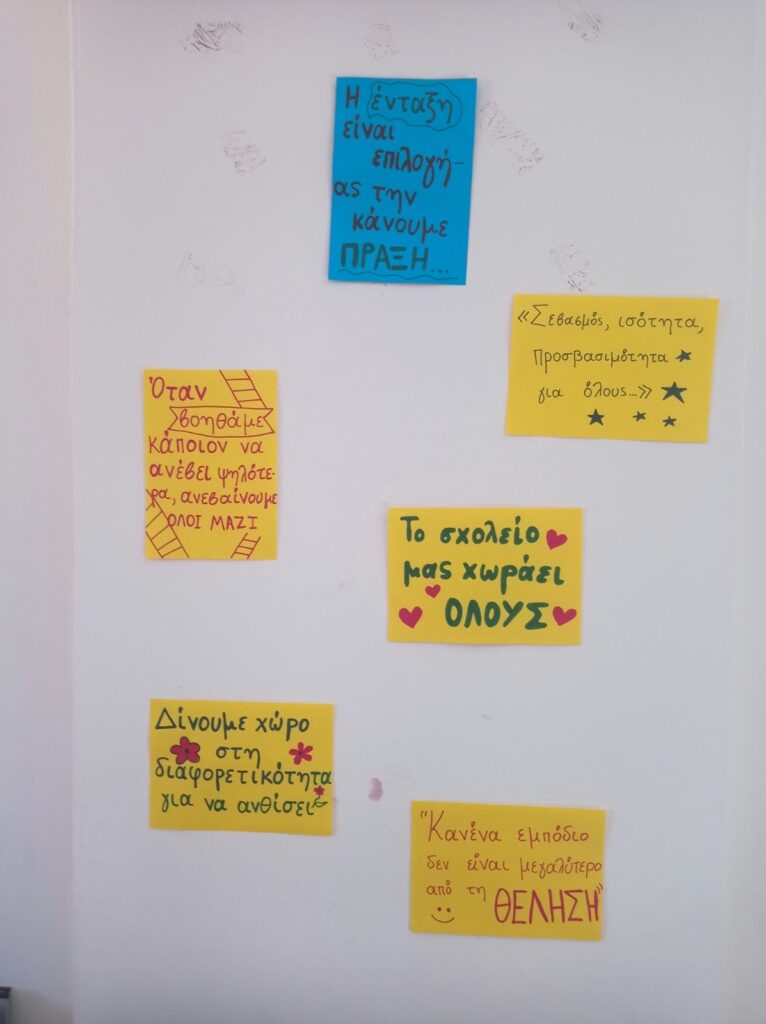 Η ένταξη
είναι
επιλογή-
ας την
κάνουμε
ΠΡΑΞΗ...
«Σεβασμός, ισότητα,
Προσβασιμότητα
για όλους...»
Όταν
βοηθάμε
κάποιον να
ανέβει ψηλότε-
ρα, ανεβαίνουμε
ΟΛΟΙ ΜΑΖΙ
Το σχολείο
μας χωράει
ΟΛΟΥΣ
Δίνουμε χώρο
στη
διαφορετικότητα
για να ανθίσει
"Κανένα εμπόδιο
δεν είναι μεγαλύτερο
από τη
ΘΕΛΗΣΗ"